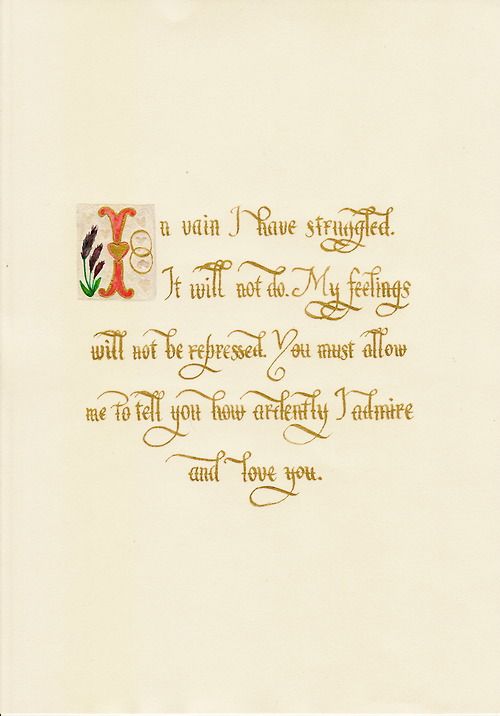 In vain I have struggled.
It will not do. My feelings
will not be repressed. You must allow
me to tell you how ardently I admire
and love you.